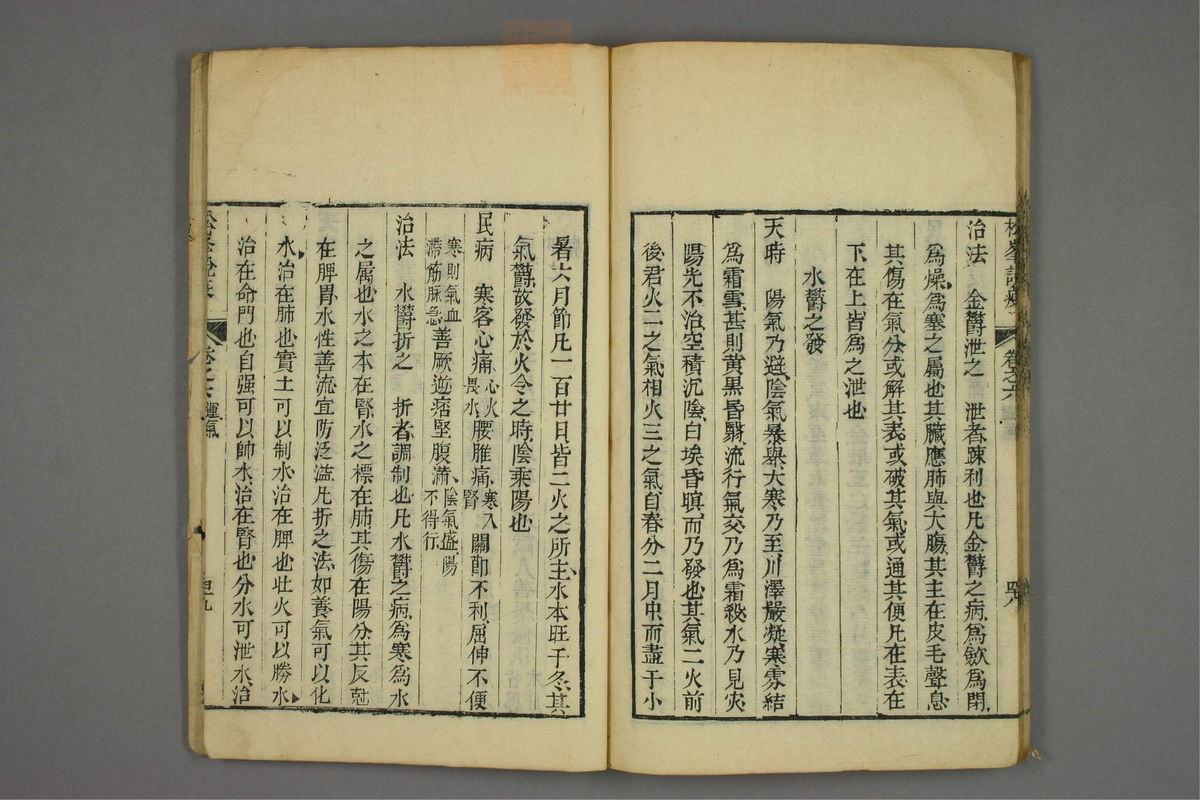 松峯說疫 卷之六 四八
治法 金鬱泄之 泄者疎利也凡金鬱之病為歛為閉
為燥為塞之屬也其臟應肺與大腸其主在皮毛聲息
其傷在氣分或解其表或破其氣或通其便凡在表在
下在上皆為之泄也
水鬱之發
天時 陽氣乃避陰氣暴舉大寒乃至川澤嚴凝寒雰結
為霜雪甚則黃黑昏翳流行氣交乃為霜殺水乃見灾
陽光不治空積沉陰白埃昏暝而乃發也其氣二火前
後君火二之氣相火三之氣自春分二月中而盡于小
暑六月節凡一百廿日皆二火之所主水本旺于冬其
氣鬱故發於火令之時陰乘陽也
民病 寒客心痛心火畏水腰脽痛寒入腎關節不利屈伸不便
寒則氣血滯筋脈急善厥逆痞堅腹滿陰氣盛陽不得行
治法 水鬱折之 折者調制也凡水鬱之病為寒為水
之屬也水之本在腎水之標在肺其傷在陽分其反尅
在脾胃水性善流宜防泛溢凡折之法如養氣可以化
水治在肺也實土可以制水治在脾也壯火可以勝水
治在命門也自强可以帥水治在腎也分水可泄水治
松峯說疫 卷之六 運氣 四九